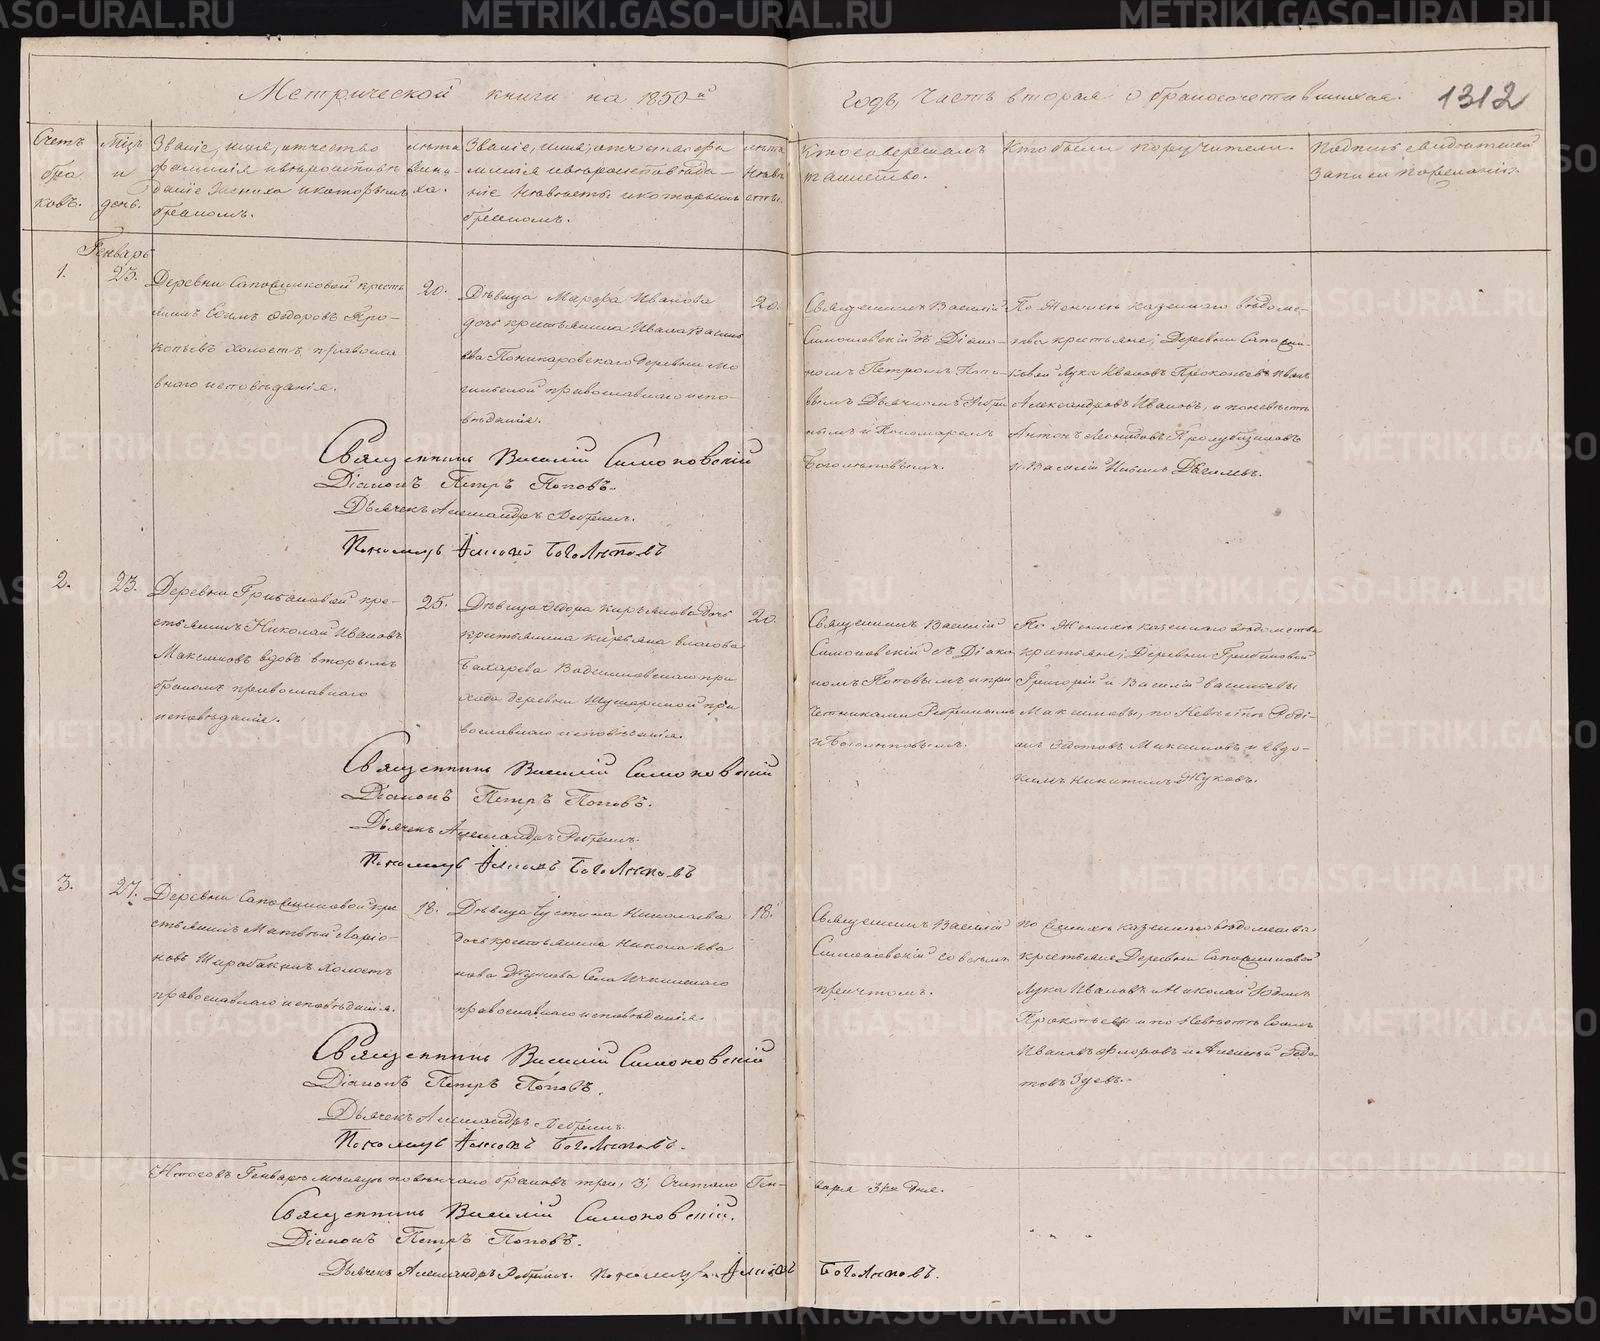 Метрической книги на 1850й годъ, Часть вторая о бракосочетавшихся.
1312
Счетъ браковъ.
Мцъ и день.
Званіе, имя, отчество
фамилія и вѣроисповѣ-
даніе жениха и которымъ
бракомъ.
лѣта жени-
ха.
Званіе, имя, отчество фа-
милія и вѣроисповѣда-
ніе невѣсты и которымъ
бракомъ.
лѣта невѣсты.
Кто совершалъ
таинство.
Кто были поручители.
Подпись свидѣтелей
записи по желанію.
Генварь
1.
23.
Деревни Сапожниковой кресть
янинъ Ѳедоровъ Про-
копьевъ холостъ, православ
наго исповѣданія.
20.
Дѣвица Марѳа Иванова
дочь крестьянина Ивана
деревни
православнаго испо-
вѣданія.
20.
Священникъ Василій
Симоновскій съ Діако-
номъ Петромъ Попо-
вымъ Дьячкомъ
и Пономаремъ
Боголѣповымъ.
По Женихѣ казеннаго вѣдомс-
тва крестьяне; Деревни Сапожни-
ковой Лука Ивановъ Прокопьевъ и
Александровъ Ивановъ, и по невѣстѣ
Антонъ
и Василій
Священникъ Василій Симоновскій
Діаконъ Петръ Поповъ.
Дьячекъ Александръ
Пономарь Алексѣй Боголѣповъ
2.
23.
Деревни Грибановой кре-
стьянинъ Николай Ивановъ
Максимовъ вдовъ вторымъ
бракомъ православнаго
исповѣданія.
25.
Дѣвица Ѳедора Кирьянова дочь
крестьянина Кирьяна Власова
Бахарева при
хода деревни пра
вославнаго исповѣданія.
20.
Священникъ Василій
Симоновскій съ Діако
номъ Поповымъ и при
четниками
и Боголѣповымъ.
По Женихѣ казеннаго вѣдомства
крестьяне; Деревни Грибановой
Григорій и Василій Васильевы
Максимовы, по Невѣстѣ Роді-
онъ Ѳедотовъ Максимовъ и Евдо-
кимъ Никитинъ Жуковъ.
Священникъ Василій Симоновскій
Діаконъ Петръ Поповъ.
Дьячекъ Александръ
Пономарь Алексѣй Боголѣповъ
3.
27.
Деревни Сапожниковой кре
стьянинъ Матвѣй Ларіо-
новъ холостъ
православнаго исповѣданія.
18.
Дѣвица Устина Николаева
дочь крестьянина Никола Ива
нова Села Ичкинскаго
православнаго исповѣданія.
18.
Священникъ Василій
Симоновскій со всѣмъ
причтомъ.
По Женихѣ казеннаго вѣдомства
крестьяне Деревни Сапожниковой
Лука Ивановъ и Николай
Прокопьевы и по Невѣстѣ
Ивановъ Флоровъ и Алексѣй Ѳедо
товъ Зуевъ.
Священникъ Василій Симоновскій
Діаконъ Петръ Поповъ.
Дьячекъ Александръ
Пономарь Алексѣй Боголѣповъ.
Итого въ Генварѣ мѣсяцѣ повѣнчано браковъ три, 3, Считано Ген-
варя 31го дня.
Священникъ Василій Симоновскій.
Діаконъ Петръ Поповъ.
Дьячекъ Александръ Пономарь Алексѣй Боголѣповъ.
METRIKI.GASO-URAL.RU